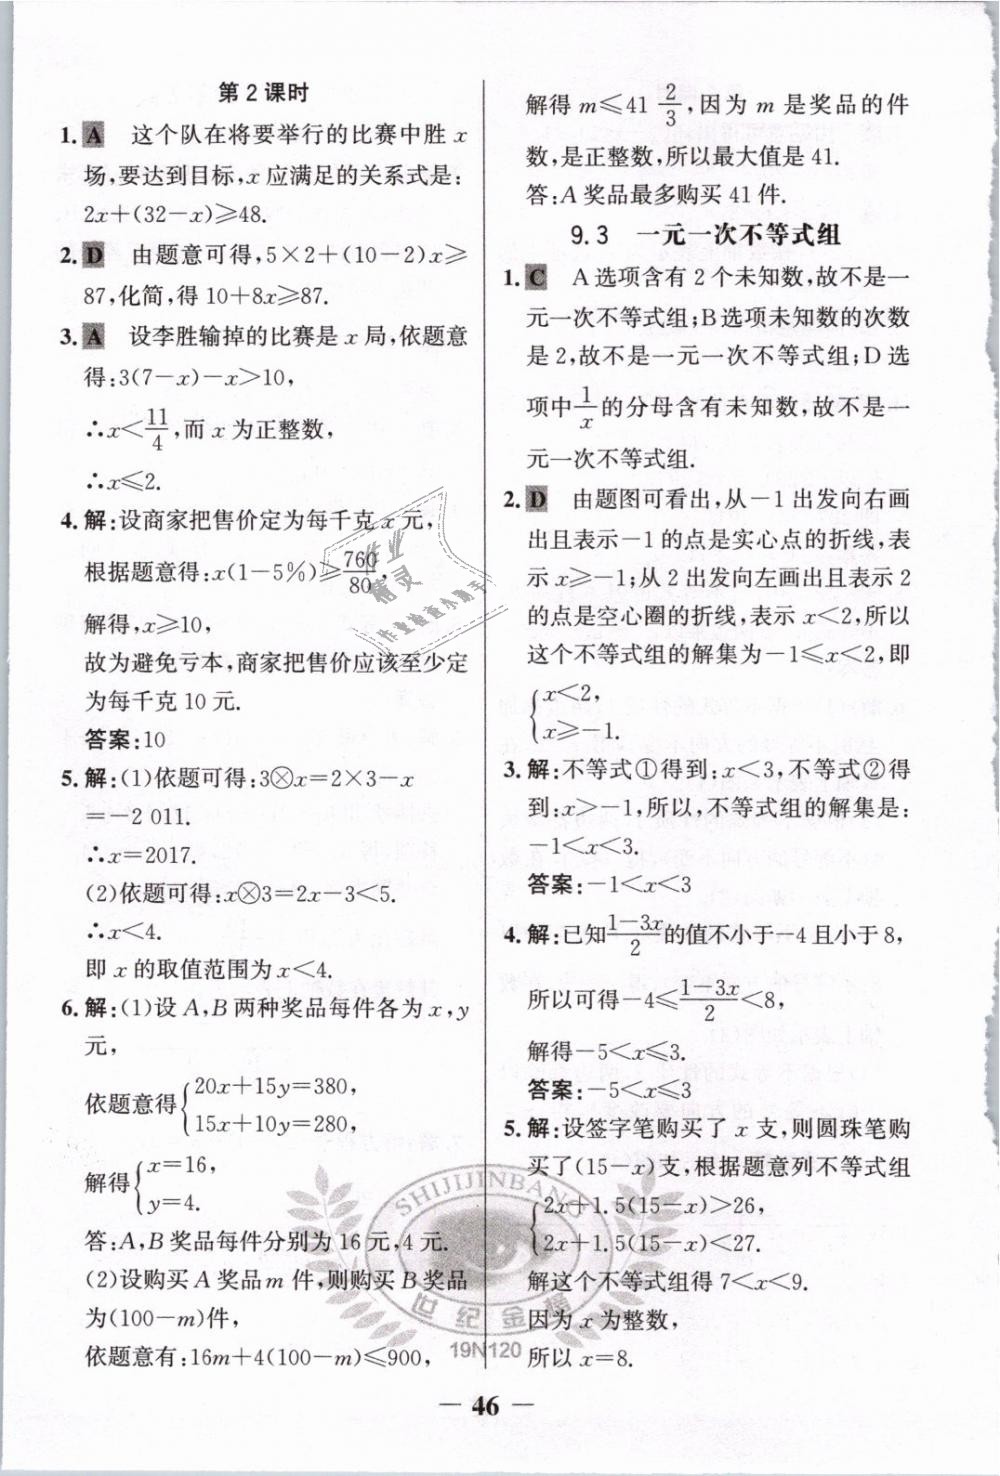 第2课时
1. A 这个队在将要举行的比赛中胜 x
场,要达到目标,x 应满足的关系式是:
2x+(32-x)≥48.
2. D 由题意可得,5×2+(10-2)x≥
87,化简,得 10+8x≥87.
3. A 设李胜输掉的比赛是 x 局,依题意
得:3(7-x)-x>10,
∴x<11/4,而 x 为正整数,
∴x≤2.
4. 解:设商家把售价定为每千克 x 元,
根据题意得:x(1-5%)≥760/80,
解得,x≥10,
故为避免亏本,商家把售价应该至少定
为每千克 10 元.
答案:10
5. 解:(1)依题可得:3⊗x=2×3-x
=-2 011.
∴x=2017.
(2)依题可得:x⊗3=2x-3<5.
∴x<4.
即 x 的取值范围为 x<4.
6. 解:(1)设 A,B 两种奖品每件各为 x,y
元,
依题意得{20x+15y=380,
15x+10y=280,
解得{x=16,
y=4.
答:A,B 奖品每件分别为 16 元,4 元.
(2)设购买 A 奖品 m 件,则购买 B 奖品
为(100-m)件,
依题意有:16m+4(100-m)≤900,
解得 m≤41 2/3,因为 m 是奖品的件
数,是正整数,所以最大值是 41.
答:A 奖品最多购买 41 件.
9.3 一元一次不等式组
1. C A 选项含有 2 个未知数,故不是一
元一次不等式组;B选项未知数的次数
是 2,故不是一元一次不等式组;D 选
项中1/x的分母含有未知数,故不是一
元一次不等式组.
2. D 由题图可看出,从-1 出发向右画
出且表示-1 的点是实心点的折线,表
示 x≥-1;从 2 出发向左画出且表示 2
的点是空心圈的折线,表示 x<2,所以
这个不等式组的解集为-1≤x<2,即
{x<2,
x≥-1.
3. 解:不等式①得到:x<3,不等式②得
到:x>-1,所以,不等式组的解集是:
-1<x<3.
答案:-1<x<3
4. 解:已知1-3x/2的值不小于-4 且小于 8,
所以可得-4≤1-3x/2<8,
解得-5<x≤3.
答案:-5<x≤3
5. 解:设签字笔购买了 x 支,则圆珠笔购
买了(15-x)支,根据题意列不等式组
{2x+1.5(15-x)>26,
2x+1.5(15-x)<27.
解这个不等式组得 7<x<9.
因为 x 为整数,
所以 x=8.
作业精灵
作业检查小助手
SHIJIJINBANG
世纪金榜
19N120
— 46 —